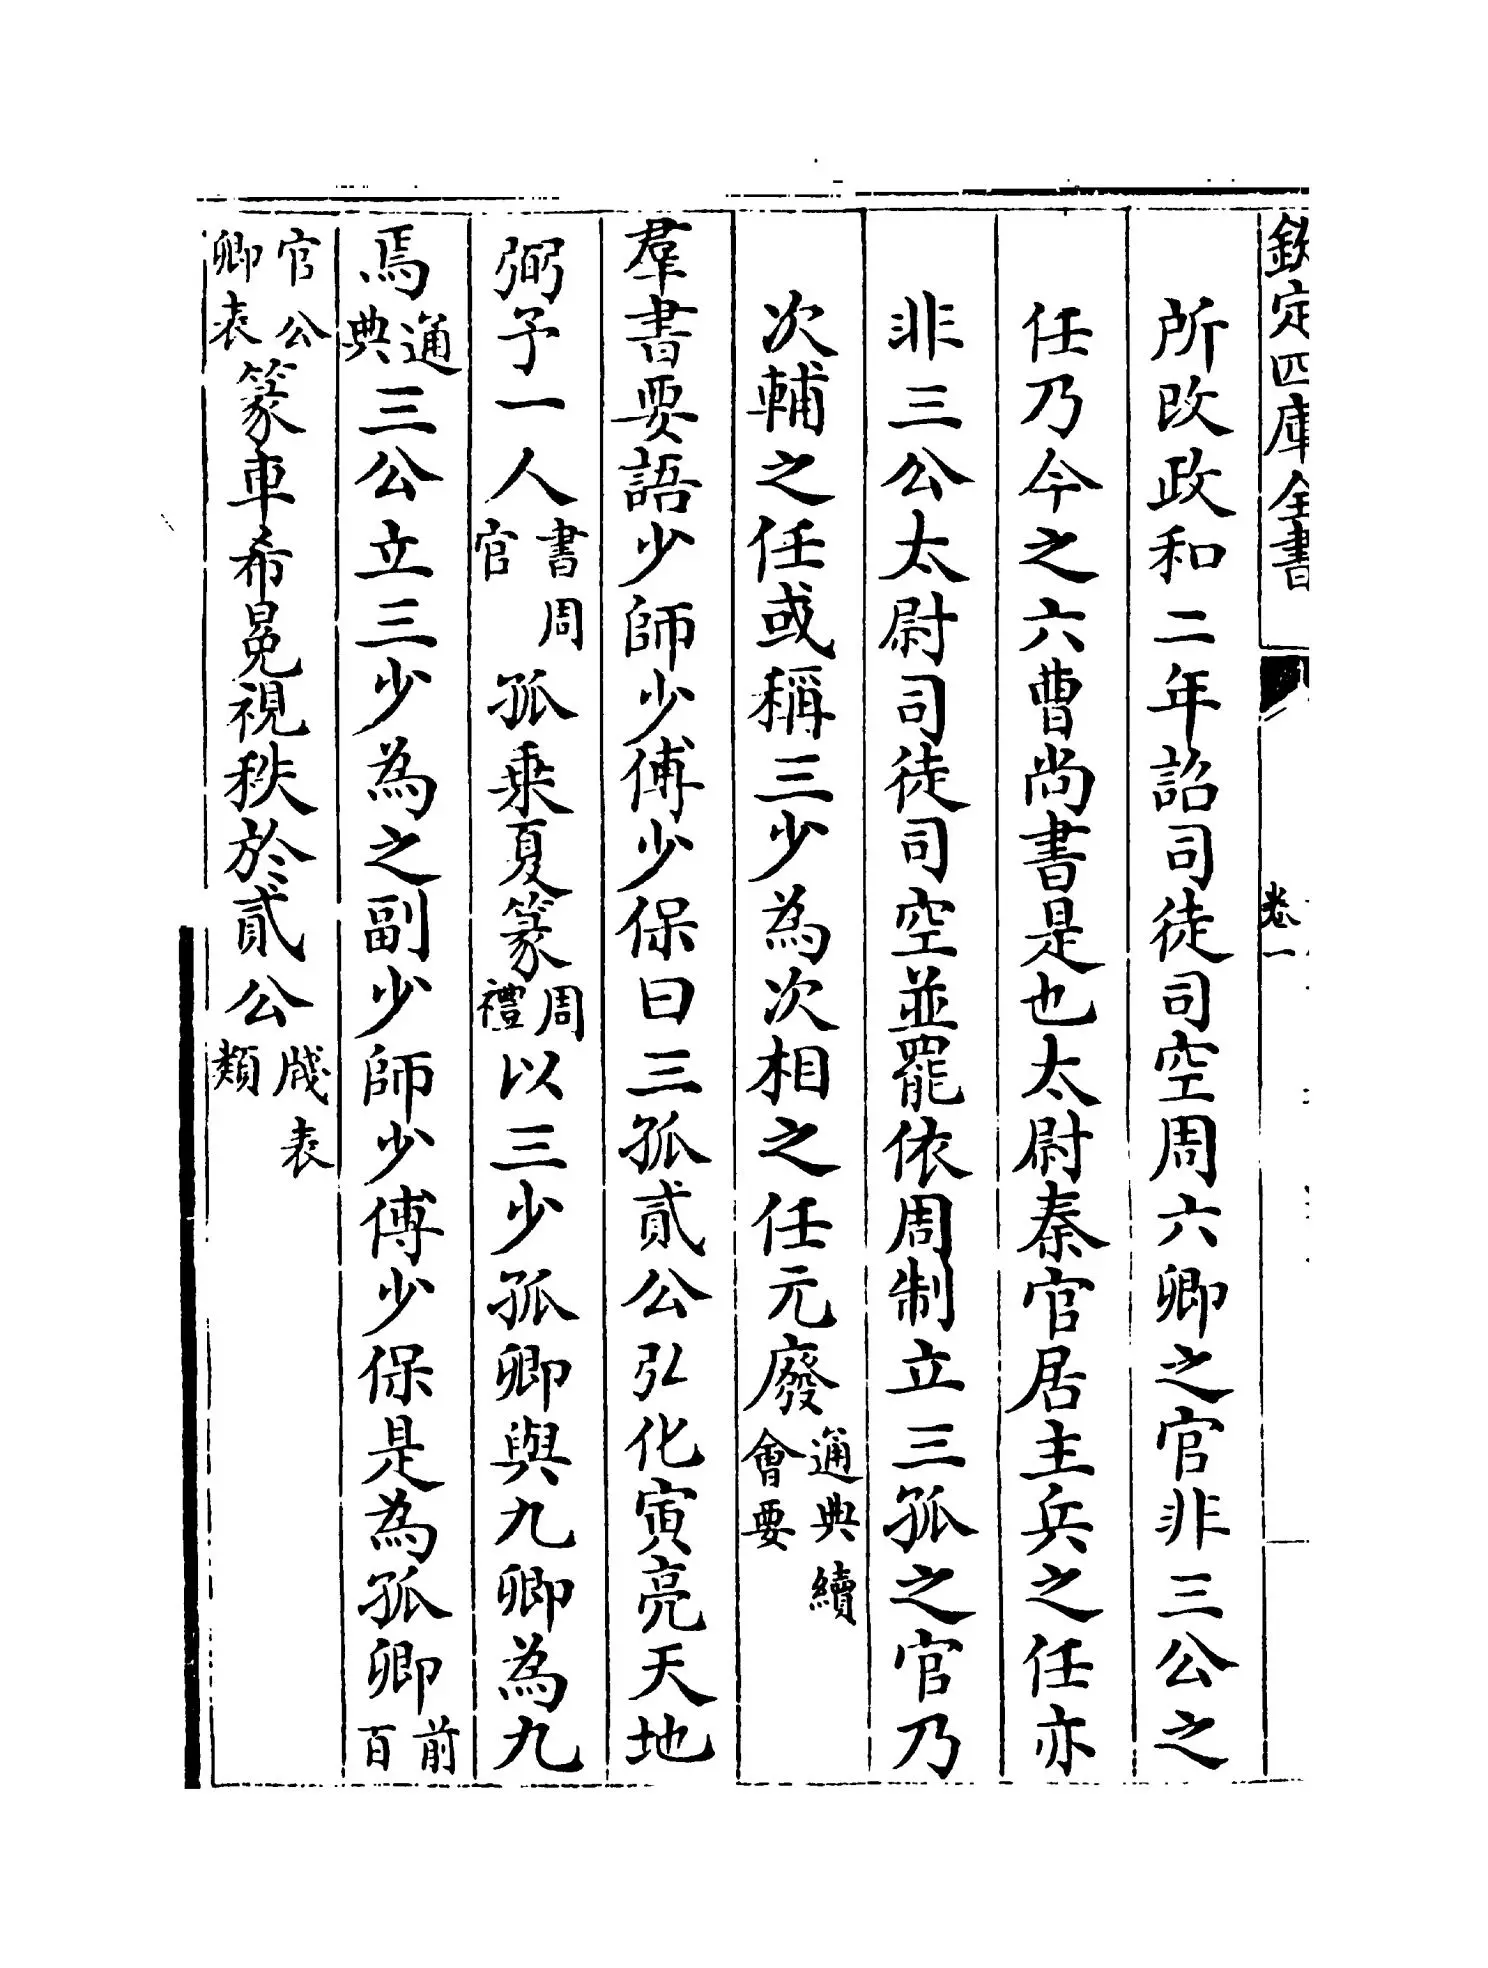 欽定四庫全書
卷一
所改政和二年詔司徒司空周六卿之官非三公之
任乃今之六曹尚書是也太尉秦官居主兵之任亦
非三公太尉司徒司空並罷依周制立三孤之官乃
次輔之任或稱三少為次相之任元廢通典續會要
羣書要語少師少傅少保曰三孤貳公弘化寅亮天地
弼予一人書周官孤乘夏篆周禮以三少孤卿與九卿為九
焉通典三公立三少為之副少師少傅少保是為孤卿前百
官公卿表篆車希冕視秩於貳公牋表類